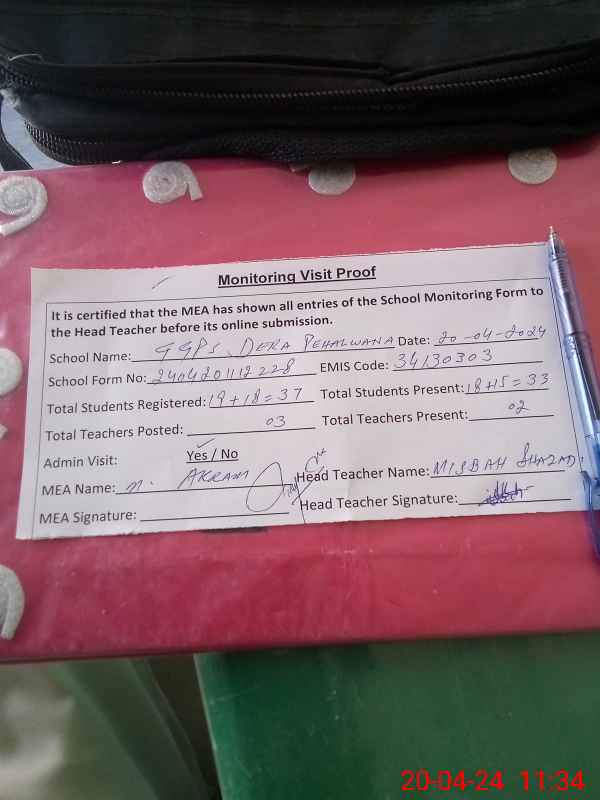 Monitoring Visit Proof
It is certified that the MEA has shown all entries of the School Monitoring Form to
the Head Teacher before its online submission.
School Name: GGPS, DERA PEHALWANA Date: 20-04-2024
School Form No: 2404201112228 EMIS Code: 34130303
Total Students Registered: 19+18=37 Total Students Present: 18+15=33
Total Teachers Posted: 03 Total Teachers Present: 02
Admin Visit: Yes / No
MEA Name: M. AKRAM Head Teacher Name: MISBAH SHAZAD
MEA Signature: Head Teacher Signature:
20-04-24 11:34